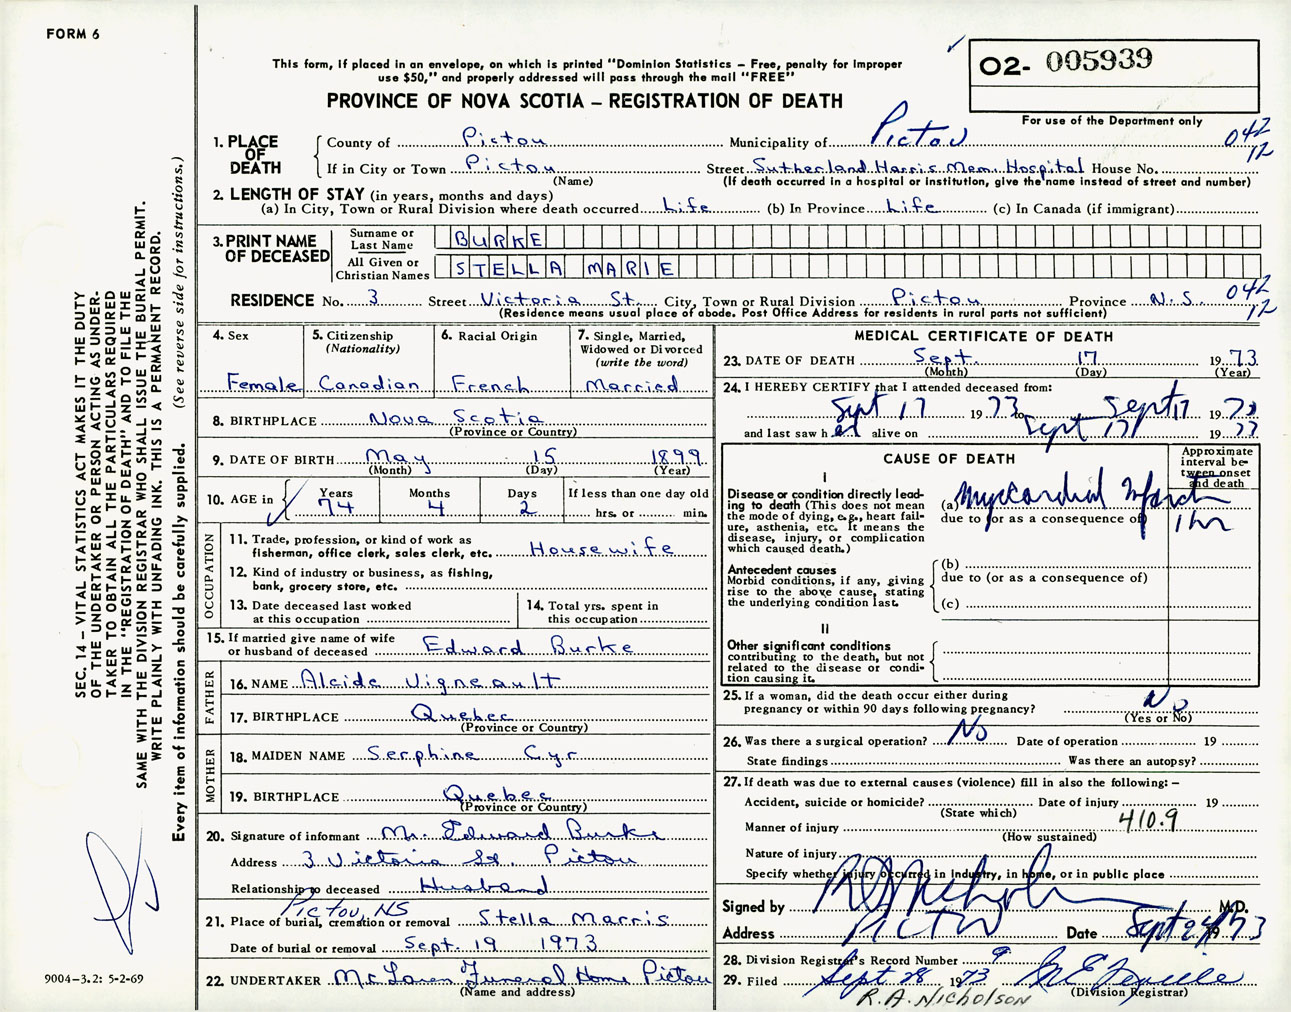 FORM 6
This form, if placed in an envelope, on which is printed "Dominion Statistics – Free, penalty for improper
use $50," and properly addressed will pass through the mail "FREE"
PROVINCE OF NOVA SCOTIA – REGISTRATION OF DEATH
O2- 005939
For use of the Department only
1. PLACE OF DEATH
County of Pictou Municipality of Pictou 042
If in City or Town Pictou Street Sutherland Harris Mem. Hospital House No. 12
(Name) (If death occurred in a hospital or institution, give the name instead of street and number)
2. LENGTH OF STAY (in years, months and days)
(a) In City, Town or Rural Division where death occurred Life (b) In Province Life (c) In Canada (if immigrant)
3. PRINT NAME OF DECEASED
Surname or Last Name BURKE
All Given or Christian Names STELLA MARIE
RESIDENCE No. 3 Street Victoria St. City, Town or Rural Division Pictou Province N.S. 042 12
(Residence means usual place of abode. Post Office Address for residents in rural parts not sufficient)
4. Sex
Female
5. Citizenship
(Nationality)
Canadian
6. Racial Origin
French
7. Single, Married,
Widowed or Divorced
(write the word)
Married
8. BIRTHPLACE Nova Scotia
(Province or Country)
9. DATE OF BIRTH May 15 1899
(Month) (Day) (Year)
10. AGE in Years Months Days If less than one day old
74 4 2 hrs. or min.
OCCUPATION
11. Trade, profession, or kind of work as
fisherman, office clerk, sales clerk, etc. Housewife
12. Kind of industry or business, as fishing,
bank, grocery store, etc.
13. Date deceased last worked
at this occupation
14. Total yrs. spent in
this occupation
15. If married give name of wife
or husband of deceased Edward Burke
FATHER
16. NAME Alcide Vigneault
17. BIRTHPLACE Quebec
(Province or Country)
MOTHER
18. MAIDEN NAME Serphine Cyr
19. BIRTHPLACE Quebec
(Province or Country)
20. Signature of informant Mr. Edward Burke
Address 3 Victoria St. Pictou
Relationship to deceased Husband
Pictou, NS
21. Place of burial, cremation or removal Stella Marris
Date of burial or removal Sept. 19 1973
22. UNDERTAKER McLaren Funeral Home Pictou
(Name and address)
MEDICAL CERTIFICATE OF DEATH
23. DATE OF DEATH Sept. 17 1973
(Month) (Day) (Year)
24. I HEREBY CERTIFY that I attended deceased from:
Sept 17 1973 to Sept 17 1973
and last saw her alive on Sept 17 1973
CAUSE OF DEATH
Approximate
interval be-
tween onset
and death
I
Disease or condition directly lead-
ing to death (This does not mean
the mode of dying, e.g., heart fail-
ure, asthenia, etc. It means the
disease, injury, or complication
which caused death.)
(a) Myocardial Infarction
due to (or as a consequence of) 1 hr
Antecedent causes
Morbid conditions, if any, giving
rise to the above cause, stating
the underlying condition last.
(b)
due to (or as a consequence of)
(c)
II
Other significant conditions
contributing to the death, but not
related to the disease or condi-
tion causing it.
25. If a woman, did the death occur either during
pregnancy or within 90 days following pregnancy? No
(Yes or No)
26. Was there a surgical operation? No Date of operation 19
State findings Was there an autopsy?
27. If death was due to external causes (violence) fill in also the following: –
Accident, suicide or homicide? Date of injury 19
(State which)
Manner of injury 410.9
(How sustained)
Nature of injury
Specify whether injury occurred in industry, in home, or in public place
Signed by M.D.
Address PICTOU Date Sept 24 1973
28. Division Registrar's Record Number 9
29. Filed Sept 28 1973
(Division Registrar)
R.A. NICHOLSON
SEC. 14 – VITAL STATISTICS ACT MAKES IT THE DUTY
OF THE UNDERTAKER OR PERSON ACTING AS UNDER-
TAKER TO OBTAIN ALL THE PARTICULARS REQUIRED
IN THE "REGISTRATION OF DEATH" AND TO FILE THE
SAME WITH THE DIVISION REGISTRAR WHO SHALL ISSUE THE BURIAL PERMIT.
WRITE PLAINLY WITH UNFADING INK. THIS IS A PERMANENT RECORD.
Every item of information should be carefully supplied. (See reverse side for instructions.)
9004-3.2: 5-2-69